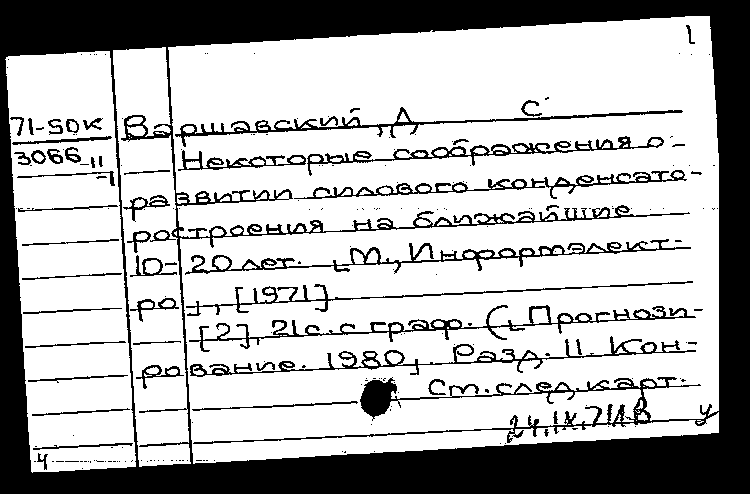 1
71-50К Варшавский, Д С
3066 11 Некоторые соображения о
-1
развитии силового конденсато-
ростроения на ближайшие
10-20 лет. [М., Информэлект-
ро], [1971].
[2], 21 с. с граф. ([Прогнози-
рование. 1980]. Разд. II. Кон-
См. след. карт.
24.IX.71 У
4